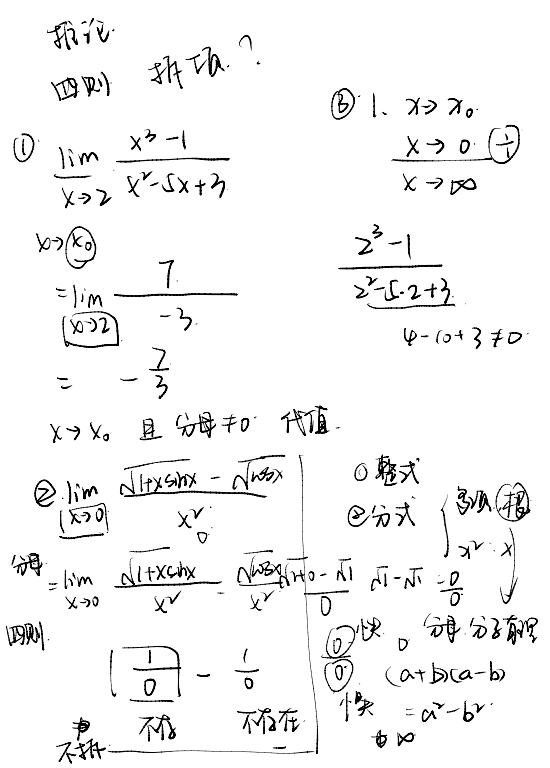 推论
四则 拆项?
① lim x→2 (x³-1)/(x²-5x+3)
x→x₀
= lim x→2 7/(-3)
= -7/3
x→x₀ 且 分母≠0 代值
③ 1. x→x₀
x→0
x→∞
(2³-1)/(2²-5·2+3)
4-10+3≠0
② lim x→0 (√(1+xsinx) - √cosx)/x²
分母 = lim x→0 √(1+xsinx)/x² - √cosx/x²
四则
1/0 - 1/0
不存 不存在
不拆
①整式
②分式
x² x
(√(1+0) - √1)/0 √1-√1 = 0/0
0/0 快 0 分母 分子有理
(a+b)(a-b)
= a²-b²
∞